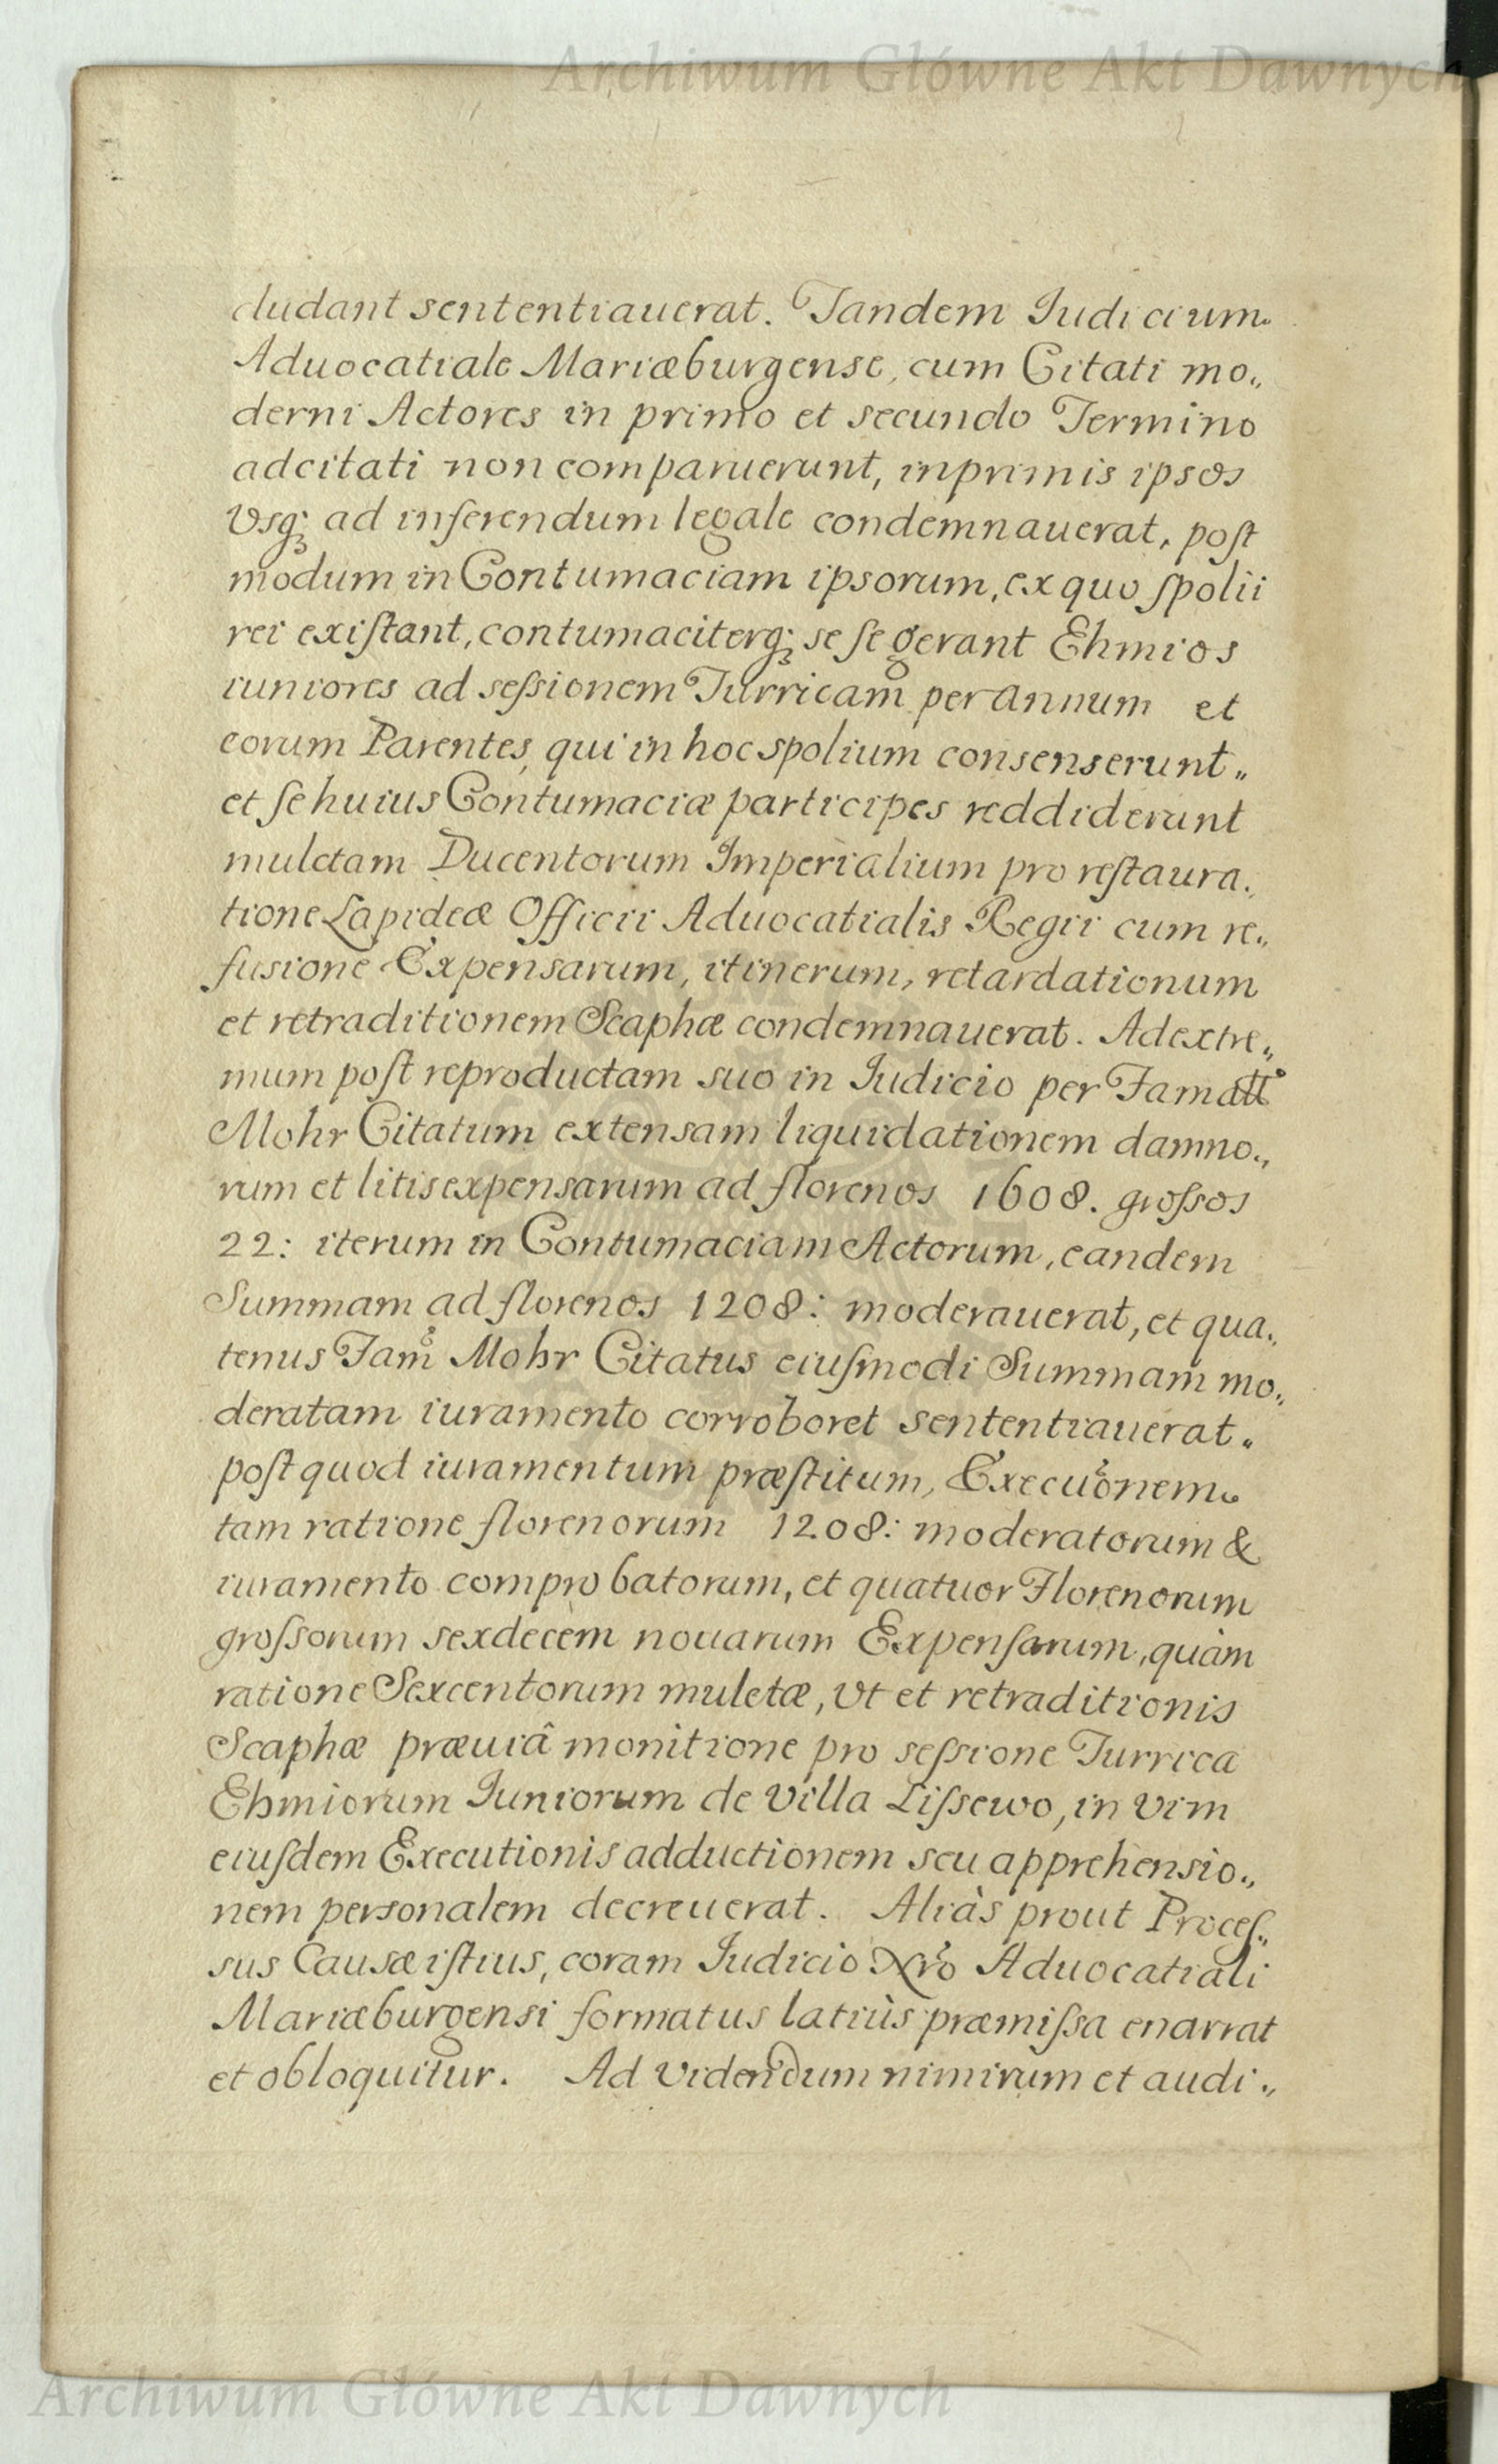 Archiwum Główne Akt Dawnych
cludant sententiauerat. Tandem Iudicium
Aduocatiale Mariæburgense, cum Citati mo„
derni Actores in primo et secundo Termino
adcitati non comparuerunt, inprimis ipsos
Vsq; ad inferendum legale condemnauerat, poſt
modum in Contumaciam ipsorum, ex quo ſpolii
rei exiſtant, contumaciterq; se ſe gerant Ehmios
iuniores ad seſsionem Turricam per annum et
eorum Parentes, qui in hoc spolium consenserunt„
et ſe huius Contumaciæ participes reddiderunt
mulctam Ducentorum Imperialium pro reſtaura„
tione Lapideæ Officii Aduocatialis Regii cum re„
fusione Expensarum, itinerum, retardationum
et retraditionem Scaphæ condemnauerat. Ad extre„
mum poſt reproductam suo in Iudicio per Famatt̊
Mohr Citatum extensam liquidationem damno„
rum et litis expensarum ad florenos 1608. groſsos
22: iterum in Contumaciam Actorum, eandem
Summam ad florenos 1208: moderauerat, et qua„
tenus Fam̊ Mohr Citatus eiuſmodi Summam mo„
deratam iuramento corroboret sententiauerat„
poſt quod iuramentum præſtitum, Execuo᷒nem
tam ratione florenorum 1208: moderatorum &
iuramento comprobatorum, et quatuor Florenorum
groſsorum sexdecem nouarum Expenſarum, quàm
ratione Sexcentorum muletæ, Vt et retraditionis
Scaphæ præuiâ monitione pro seſsione Turrica
Ehmiorum Iuniorum de Villa Liſsewo, in Vim
eiuſdem Executionis adductionem seu apprehensio„
nem personalem decreuerat. Aliàs prout Proceſ„
sus Causæ iſtius, coram Iudicio Nr̃o Aduocatiali
Mariæburgensi formatus latiùs præmiſsa enarrat
et obloquitur. Ad Videndum nimirum et audi„
Archiwum Główne Akt Dawnych